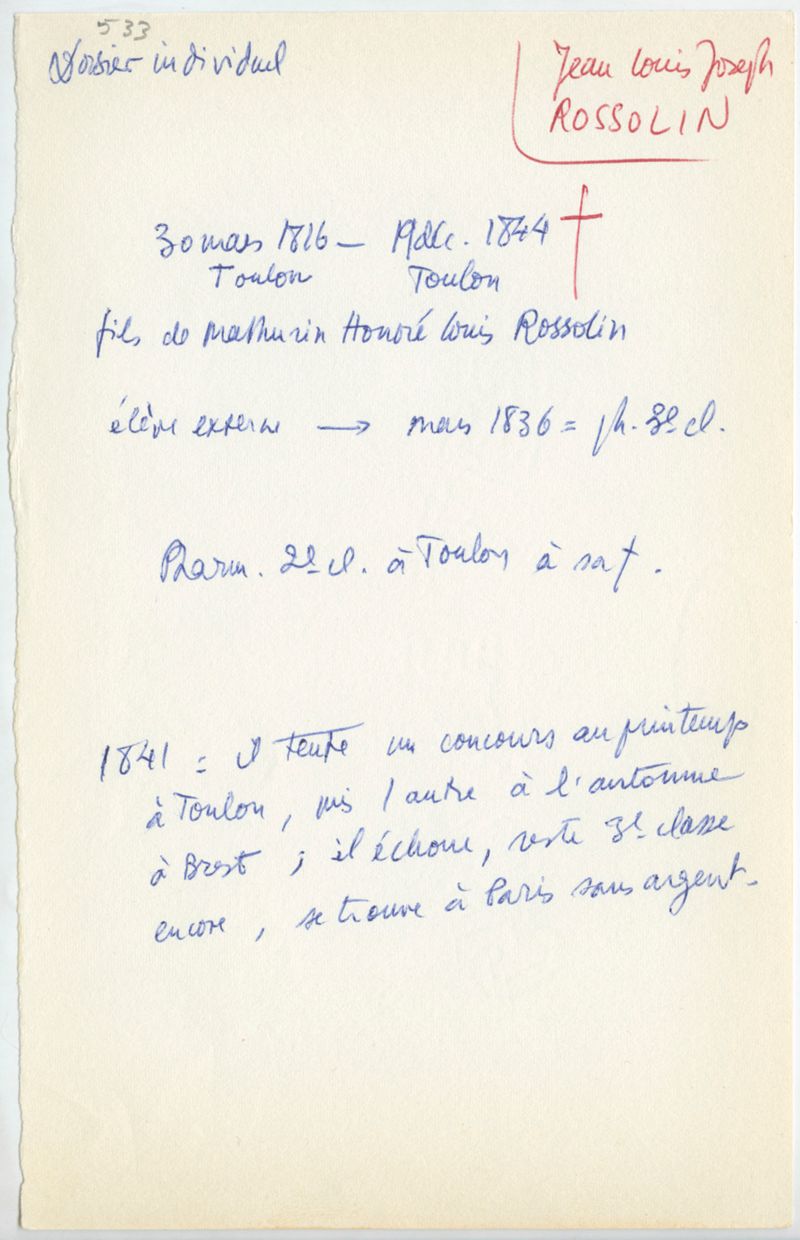 533
Dossier individuel
Jean Louis Joseph
ROSSOLIN
30 mars 1816 — 19 déc. 1844 †
Toulon Toulon
fils de Mathurin Honoré Louis Rossolin
élève externe → mars 1836 = ph. 3e cl.
Pharm. 2e cl. à Toulon à sa †.
1841 = il tente un concours au printemps
à Toulon, puis 1 autre à l'automne
à Brest ; il échoue, reste 3e classe
encore, se trouve à Paris sans argent.